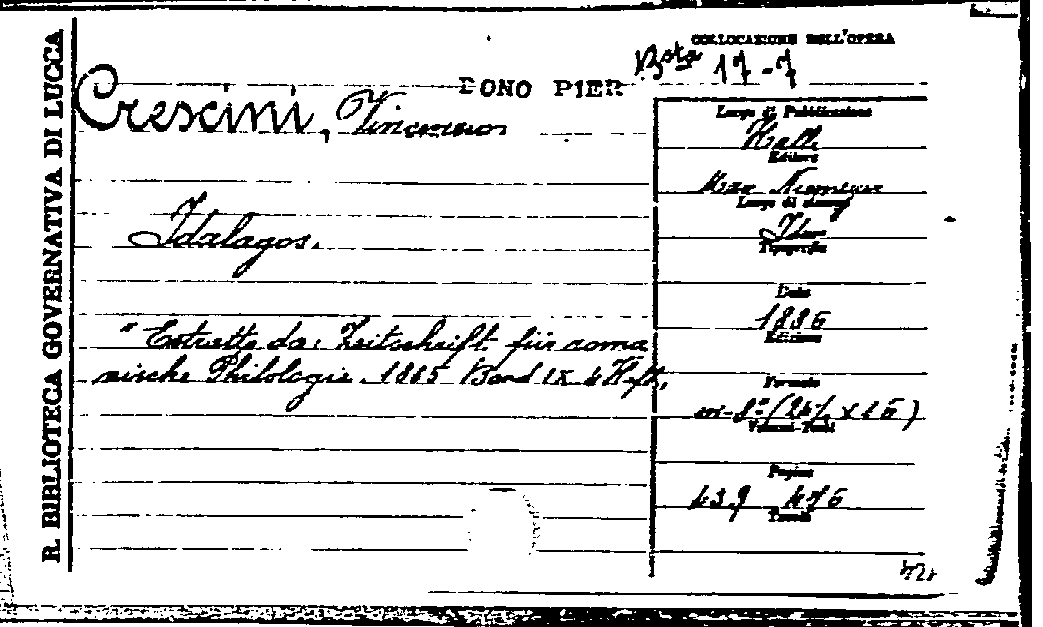 R. BIBLIOTECA GOVERNATIVA DI LUCCA
COLLOCAZIONE DELL'OPERA
Bsta 17-7
DONO PIER
Crescini, Vincenzo
Idalagos.
"Estratto da: Zeitschrift für roma
nische Philologie. 1885 Band IX 4 Heft,
Luogo di Pubblicazione
Halle
Editore
Max Niemeyer
Luogo di stampa
Idem
Tipografia
Data
1886
Edizione
Formato
in-8º (24½ x 16)
Volumi-Tomi
Pagine
439 476
Tavole